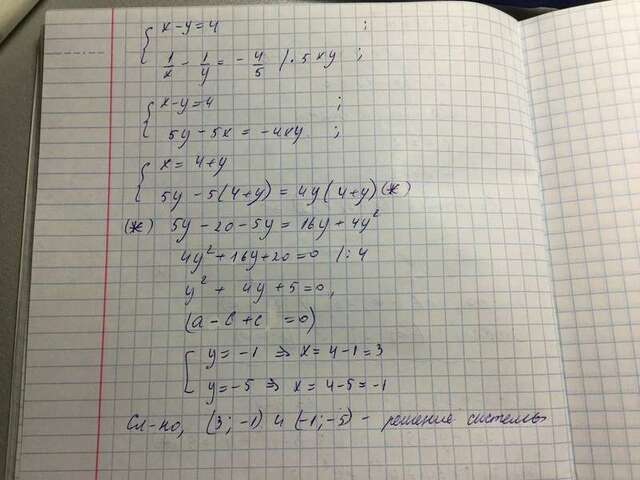 { x-y=4 ;
1/x - 1/y = - 4/5 /· 5xy ;
{ x-y=4 ;
5y-5x = -4xy ;
{ x = 4+y
5y -5(4+y) = 4y(4+y) (ж)
(ж) 5y-20-5y = 16y+4y²
4y²+16y+20=0 /:4
y² + 4y+5=0,
(a-c+c =0)
{ y=-1 ⇒ x=4-1=3
y=-5 ⇒ x=4-5=-1
Сл-но, (3;-1) и (-1;-5) - решение системы